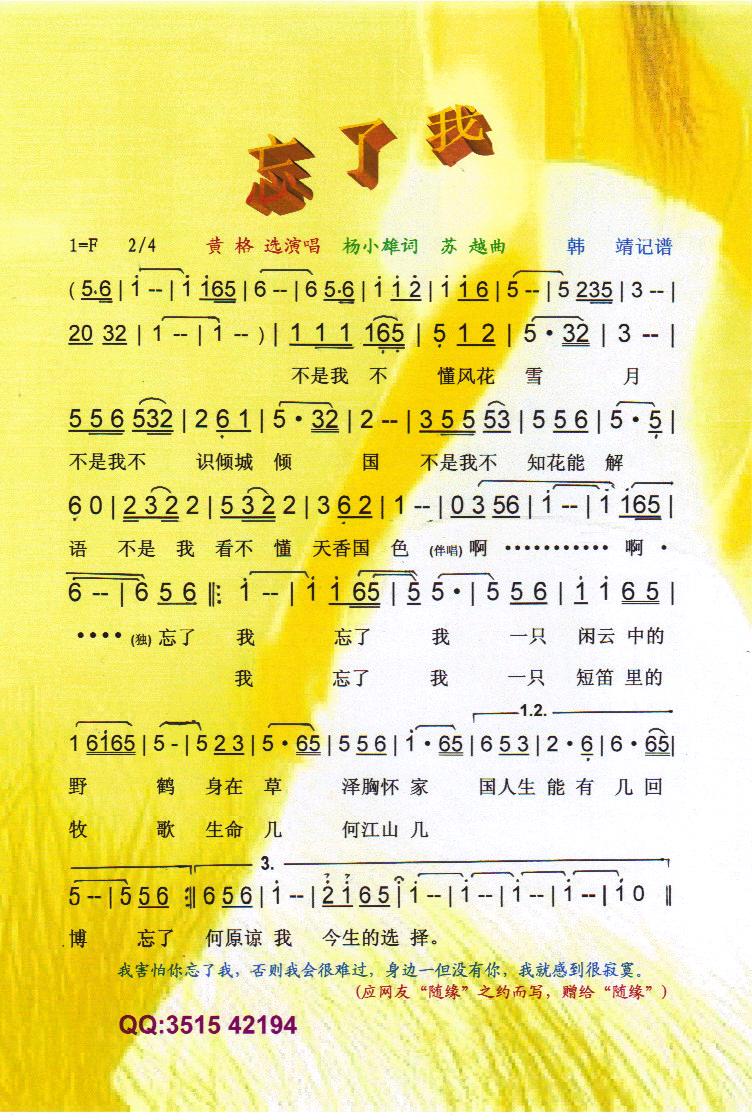 忘了我
1=F 2/4 黄 格 选演唱 杨小雄词 苏 越曲 韩 靖记谱
( 5·6 | 1 -- | 1 165 | 6 -- | 6 5·6 | 1 1 2 | 1 1 6 | 5 -- | 5 235 | 3 -- |
20 32 | 1 -- | 1 -- ) | 1 1 1 165 | 5 1 2 | 5 · 32 | 3 -- |
不是我 不 懂风花 雪 月
5 5 6 532 | 2 6 1 | 5 · 32 | 2 -- | 3 5 5 53 | 5 5 6 | 5 · 5 |
不是我不 识倾城 倾 国 不是我不 知花能 解
6 0 | 2 3 2 2 | 5 3 2 2 | 3 6 2 | 1 -- | 0 3 56 | 1 -- | 1 165 |
语 不是 我 看不 懂 天香国 色 (伴唱) 啊 ··········· 啊 ·
6 -- | 6 5 6 ‖: 1 -- | 1 1 65 | 5 5 · | 5 5 6 | 1 1 6 5 |
···· (独) 忘了 我 忘了 我 一只 闲云 中的
我 忘了 我 一只 短笛 里的
1.2.
1 6165 | 5 - | 5 2 3 | 5 · 65 | 5 5 6 | 1 · 65 | 6 5 3 | 2 · 6 | 6 · 65 |
野 鹤 身在 草 泽胸怀 家 国人生 能 有 几 回
牧 歌 生命 几 何江山 几
3.
5 -- | 5 5 6 :‖ 6 5 6 | 1 -- | 2 1 6 5 | 1 -- | 1 -- | 1 -- | 1 -- | 1 0 ‖
博 忘了 何原谅 我 今生的 选 择。
我害怕你忘了我，否则我会很难过，身边一但没有你，我就感到很寂寞。
(应网友“随缘”之约而写，赠给“随缘”)
QQ:3515 42194